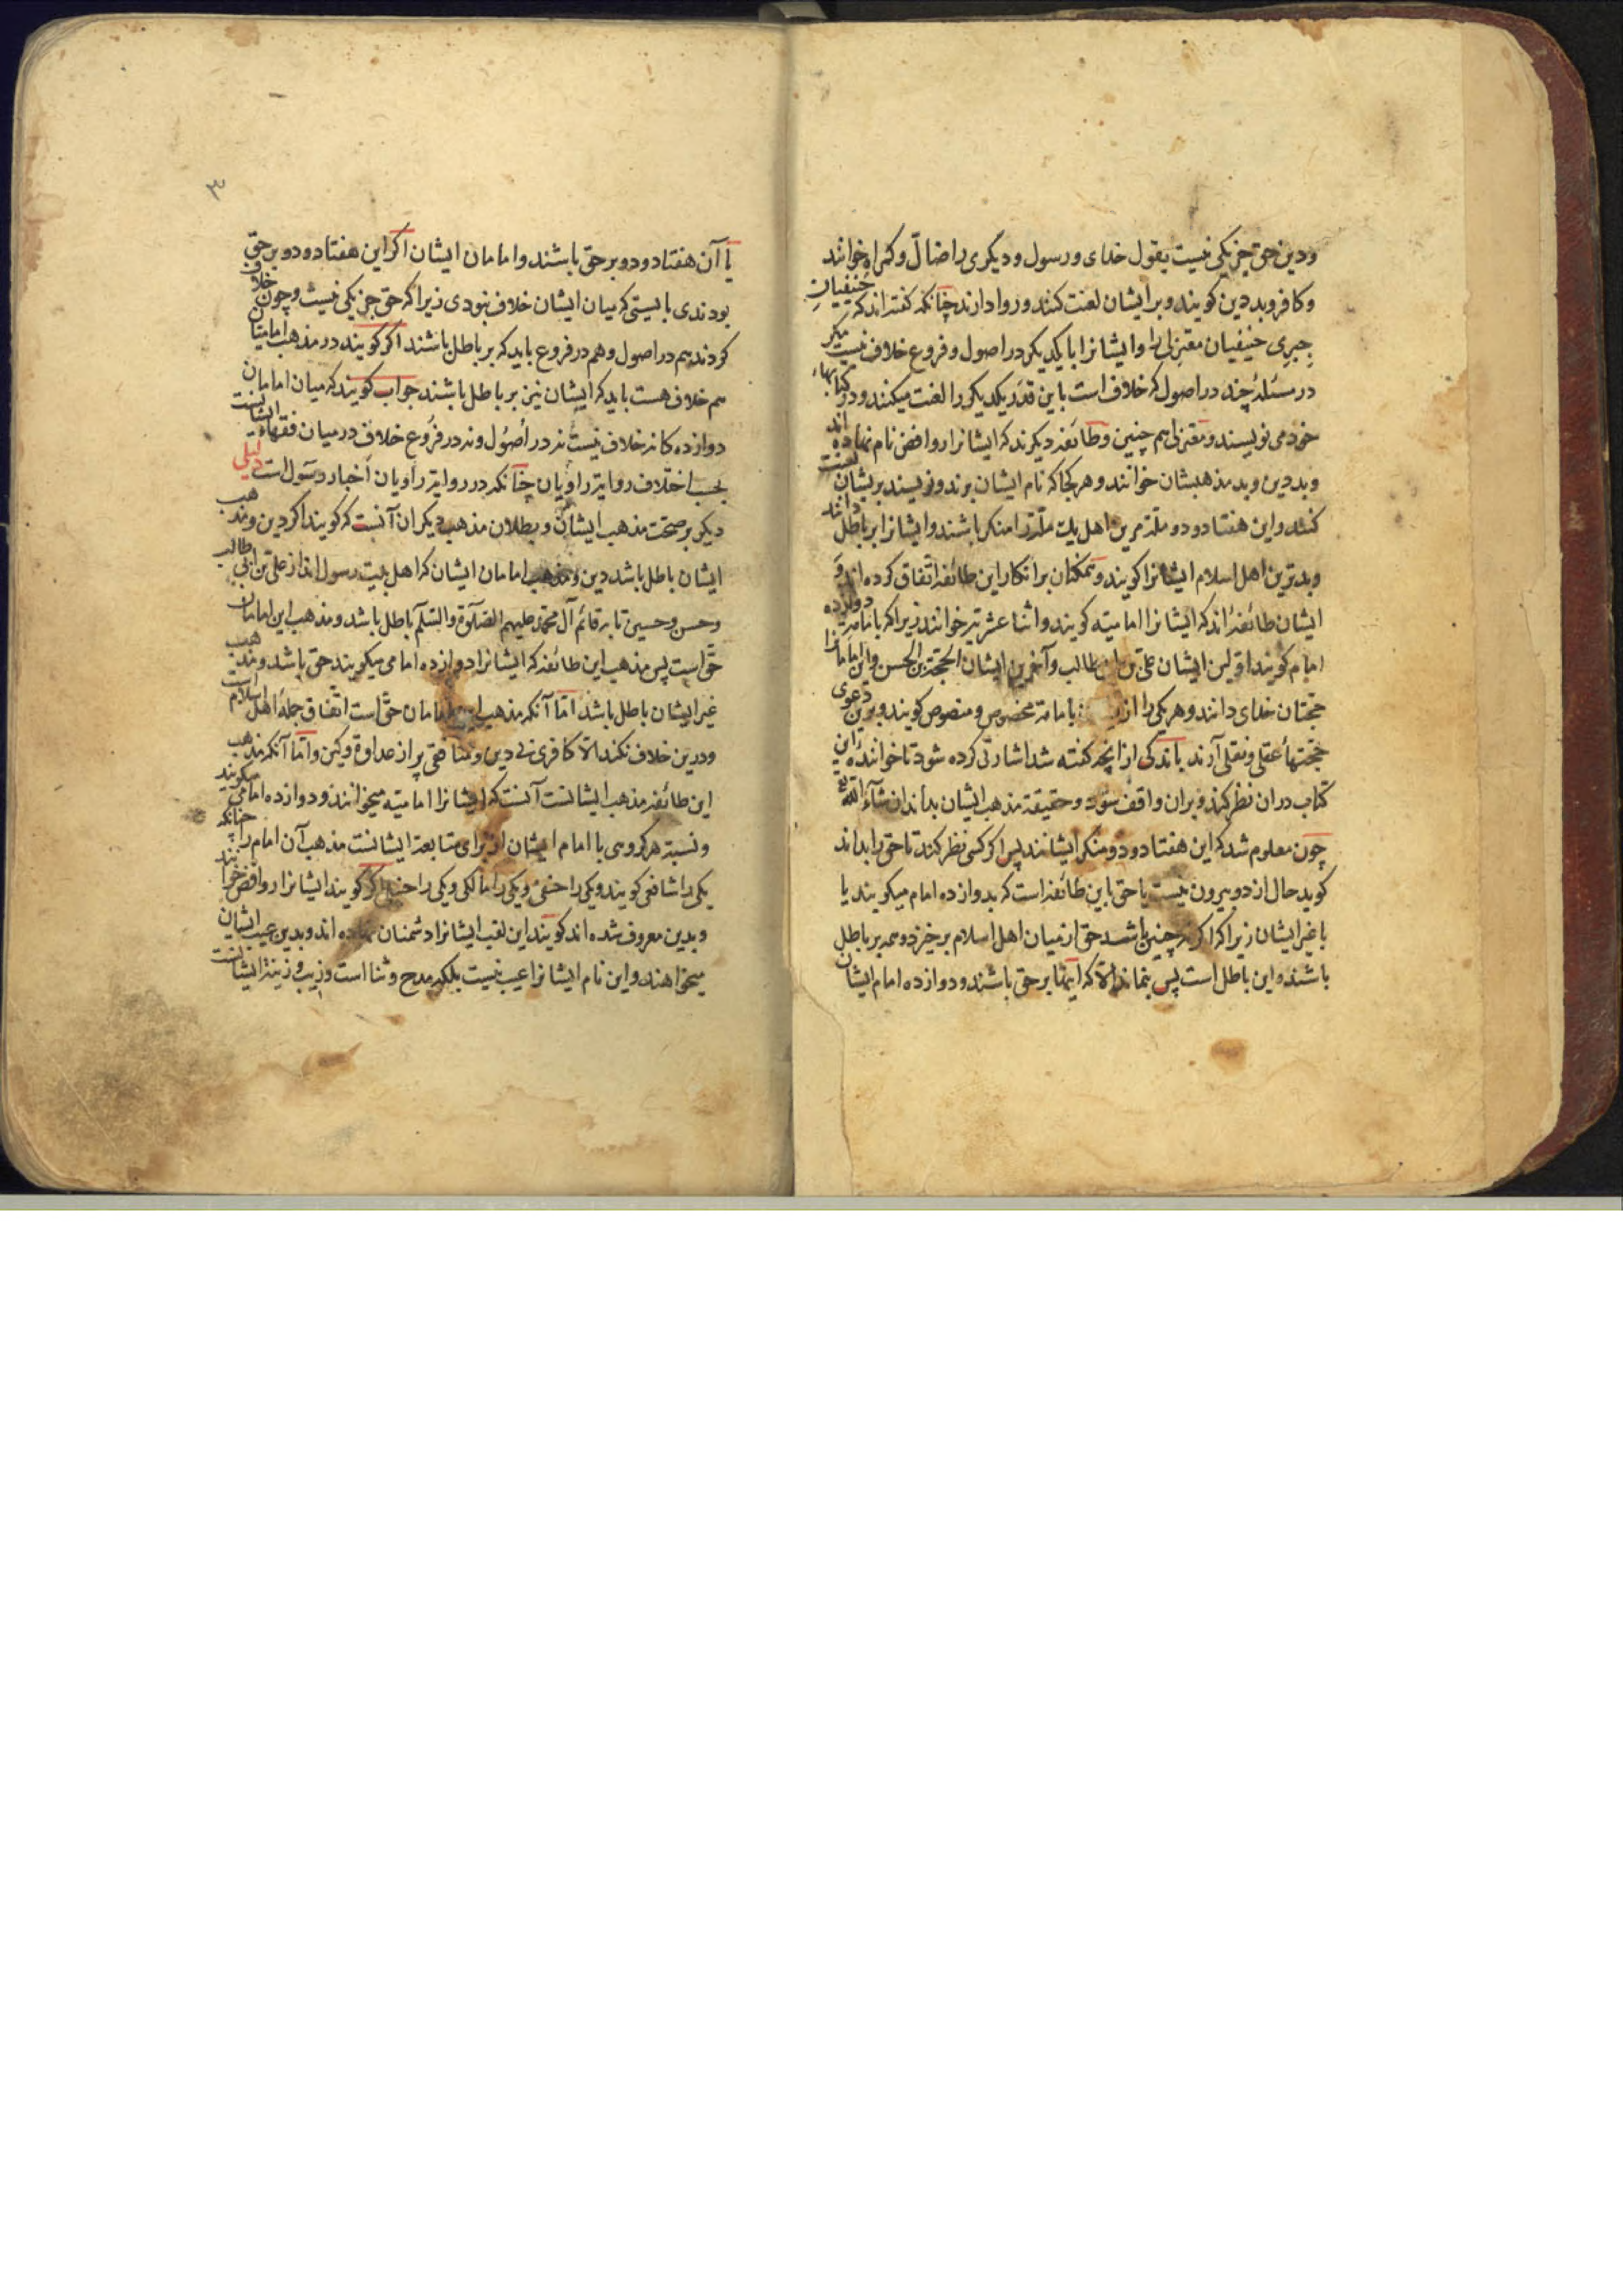 ودین حق جز یکی نیست بقول خدای و رسول و دیگری را ضالّ و کمراه خوانند
وکافر و بد دین کویند و بر ایشان لعنت کنند و روا دارند چنانکه کفته اند که حنفیان
جبری حنیفیان معتزلی را و ایشانرا با یکدیکر در اصول و فروع خلاف نیست مکر
در مسئلهٔ چند در اصول که خلاف است باین قدر یکدیکر را لعنت میکنند و در کتابهاء
خود می نویسند و معتزلی هم چنین وطائفه دیکرند که ایشانرا روافض نام نهاده اند
و بد دین و بد مذهبشان خوانند و هر کجا که نام ایشان برند و نویسند بریشان لعنت
کنند و این هفتاد و دو ملّة مرین اهل یک ملّة را منکر باشند و ایشانرا بر باطل دانند
و بدترین اهل اسلام ایشانرا کویند و همکنان بر انکار این طائفه اتفاق کرده اند و
ایشان طائفهٔ اند که ایشانرا امامیّه کویند و اثنا عشریّه خوانند زیرا که بامامة دوازده
امام کویند اوّلین ایشان علی بن ابی طالب و آخرین ایشان الحجة بن الحسن و این امامانرا
حجتان خدای دانند و هر یکی را از بامامة مخصوص و منصوص کویند و برین دعوی
حجّتهاءٔ عقلی و نقلی آرند باندکی از انچه کفته شد اشارتی کرده شود تا خوانندهٔ این
کتاب دران نظر کند و بران واقف شود و حقیقة مذهب ایشان بداند ان شآء الله تع
چون معلوم شد که این هفتاد و دو منکر ایشانند پس اکر کسی نظر کند تا حق را بداند
کوید حال از دو بیرون نیست یا حق باین طائفه است که بدوازده امام میکویند یا
با غیر ایشان زیرا که اکر نه چنین باشد حق از میان اهل اسلام بر خیزد و همه بر باطل
باشند و این باطل است پس بنماند الّا که اینها بر حق باشند و دوازده امام ایشان
۳
یا آن هفتاد و دو بر حق باشند و امامان ایشان اکر این هفتاد و دو بر حق
بودندی بایستی که میان ایشان خلاف نبودی زیرا که حق جز یکی نیست و چون خلاف
کردند هم در اصول و هم در فروع باید که بر باطل باشند اکر کویند در مذهب امامیان
هم خلاف هست باید که ایشان نیز بر باطل باشند جواب کویند که میان امامان
دوازده کانه خلاف نیست نه در اصُول و نه در فرُوع خلاف در میان فقهاء ایشانست
بحسب اختلاف روایة راویان چنانکه در روایة راویان اخبار رسول است دلیلی
دیکر بر صحّت مذهب ایشان و بطلان مذهب دیکران آنست که کویند اکر دین و مذهب
ایشان باطل باشد دین و مذهب امامان ایشان که اهل بیت رسول اند از علی بن ابی طالب
و حسن و حسین تا به قائم آل محمّد علیهم الصّلوة والسّلام باطل باشد و مذهب این امامان
حق است پس مذهب این طائفه که ایشانرا دوازده امامی میکویند حق باشد و مذهب
غیر ایشان باطل باشد امّا آنکه مذهب این امامان حق است اتّفاق جملهٔ اهل اسلام است
و درین خلاف نکند الّا کافری بی دین و منافقی پر از عداوة و کین و امّا آنکه مذهب
این طائفه مذهب ایشانست آنست که ایشانرا امامیّه میخوانند و دوازده امامی میکویند
و نسبة هر کروهی با امام ایشان از برای متابعة ایشانست مذهب آن امام را چنانکه
یکی را شافعی کویند و یکی را حنفی و یکی را مالکی و یکی را حنبلی اکر کویند ایشانرا روافض خوانند
و بدین معروف شده اند کویند این لقب ایشانرا دشمنان نهاده اند و بدین عیب ایشان
میخواهند و این نام ایشانرا عیب نیست بلکه مدح و ثنا است و زیب و زینة ایشانست